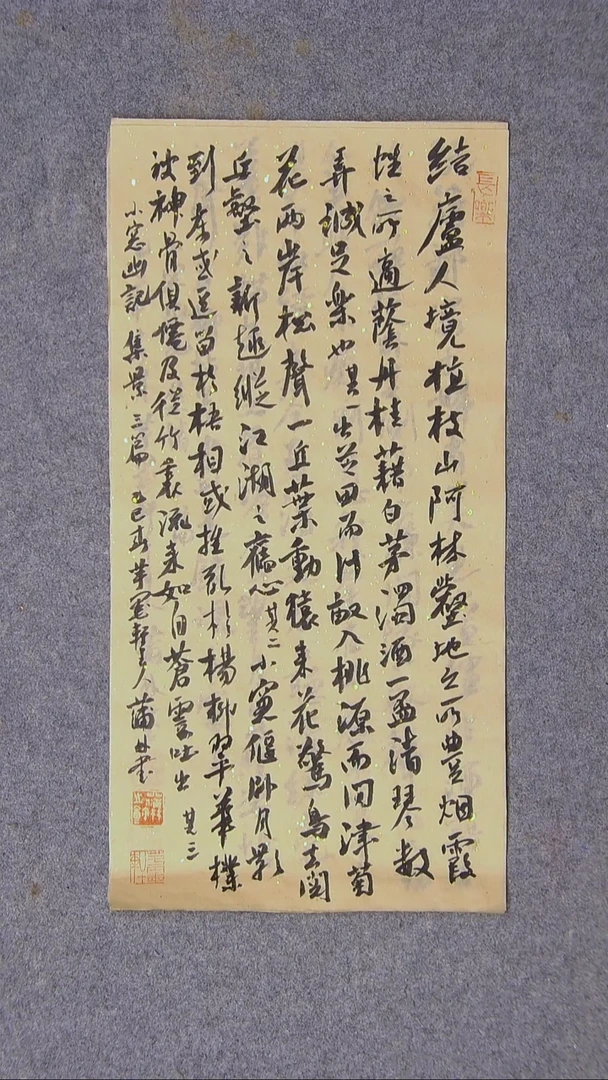 長樂
結廬人境植杖山阿林壑地之所豐烟霞
性之所適蔭丹桂藉白茅濁酒一盃清琴數
弄誠足樂也其一出芝田而計畝入桃源而問津菊
花兩岸松聲一丘葉動猿來花驚鳥去閱
丘壑之新趣縱江湖之舊心其二小窓偃臥月影
到牀或逗留於梧桐或搖亂於楊柳翠華撲
被神骨俱僊及從竹裏流來如自蒼雲吐出其三
小窓幽記集景三篇乙巳春軒主人蒲林書